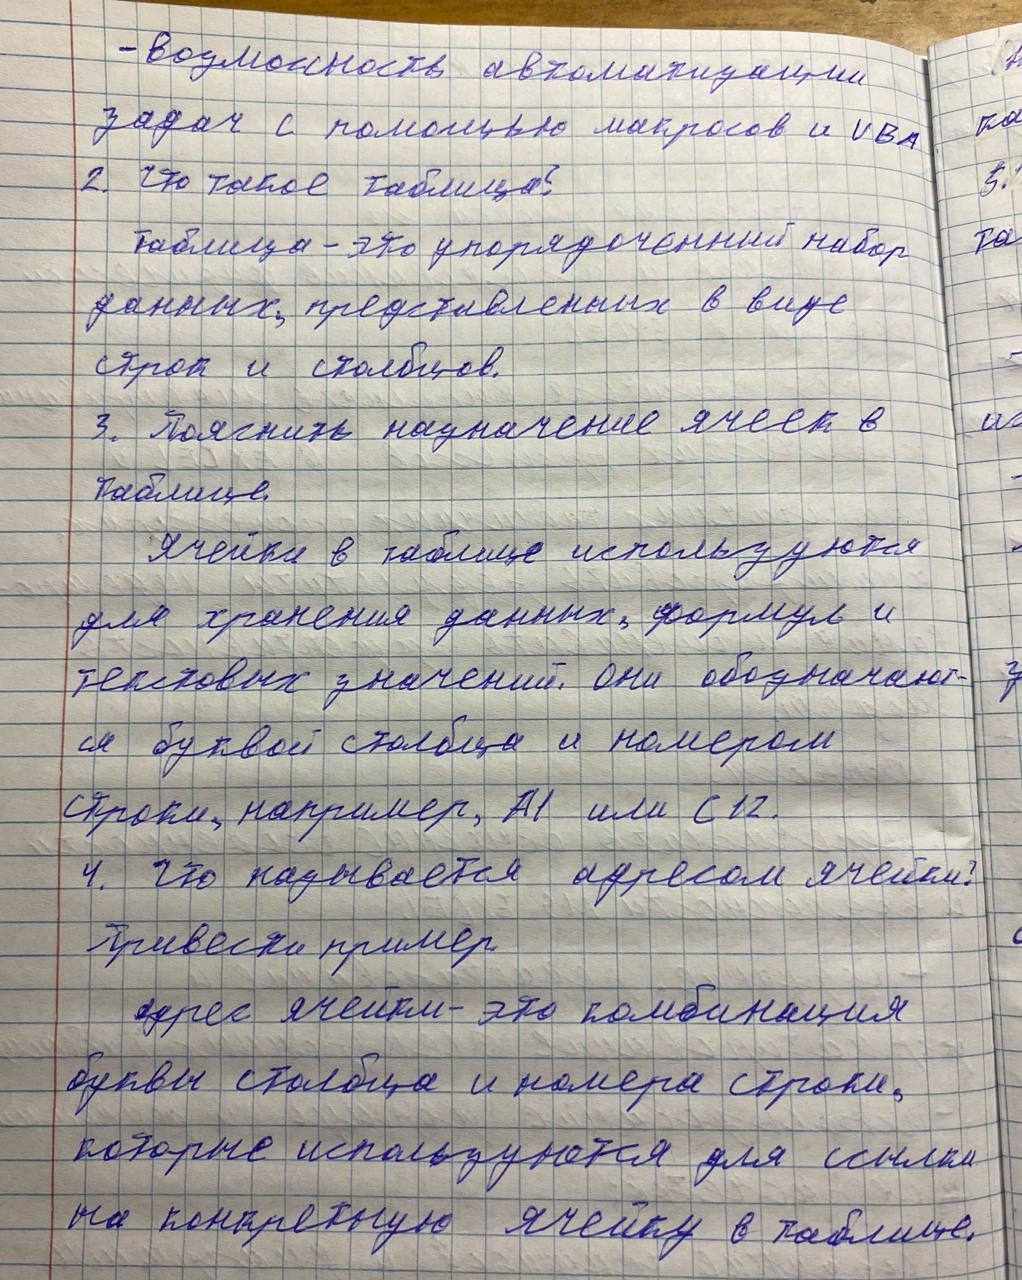 - Возможность автоматизации
задач с помощью макросов и VBA
2. Что такое таблица?
Таблица - это упорядоченный набор
данных, представленных в виде
строк и столбцов.
3. Пояснить назначение ячеек в
таблице.
Ячейки в таблице используются
для хранения данных, формул и
текстовых значений. Они обозначают-
ся буквой столбца и номером
строки, например, A1 или C12.
4. Что называется адресом ячейки?
Привести пример
Адрес ячейки - это комбинация
буквы столбца и номера строки,
которые используются для ссылки
на конкретную ячейку в таблице.
ка
5.
та